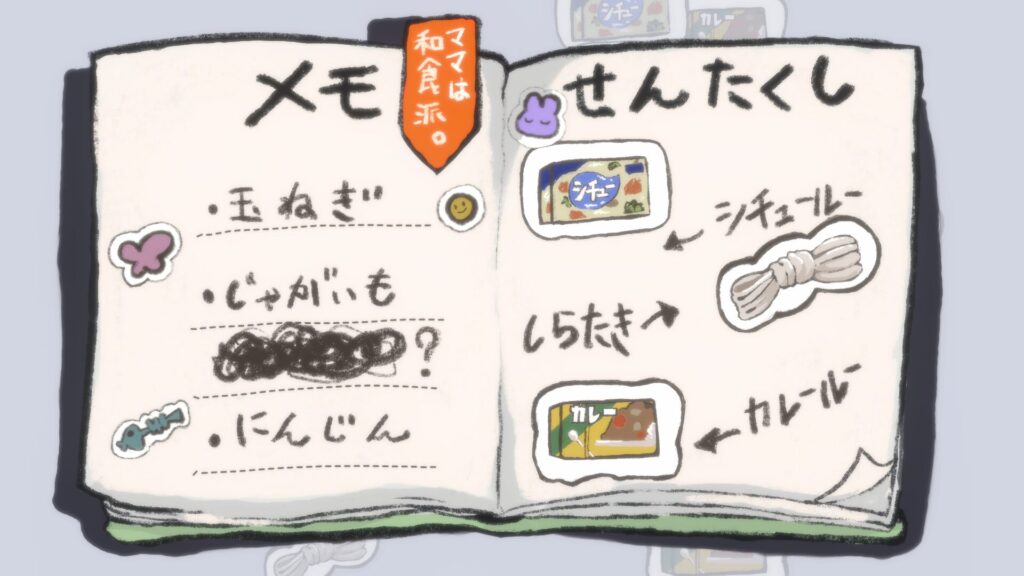 メモ
ママは
和食派。
・玉ねぎ
・じゃがいも
?
・にんじん
せんたくし
シチュー
シチュールー
しらたき
カレー
カレールー
シチュー
カレー